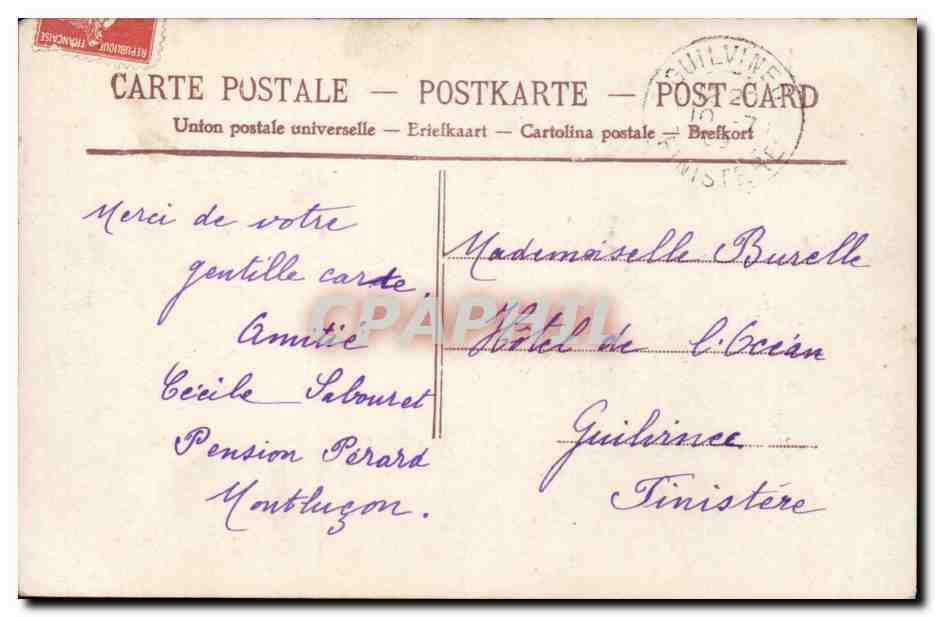 REPUBLIQUE FRANÇAISE
GUILVINEC
FINISTERE
CARTE POSTALE — POSTKARTE — POST CARD
Union postale universelle — Briefkaart — Cartolina postale — Brefkort
Merci de votre
gentille carte.
Amitié
Cécile Sabouret
Pension Pérard
Montluçon.
Mademoiselle Burelle
Hôtel de l'Océan
Guilvinec
Finistére
CPAPHIL